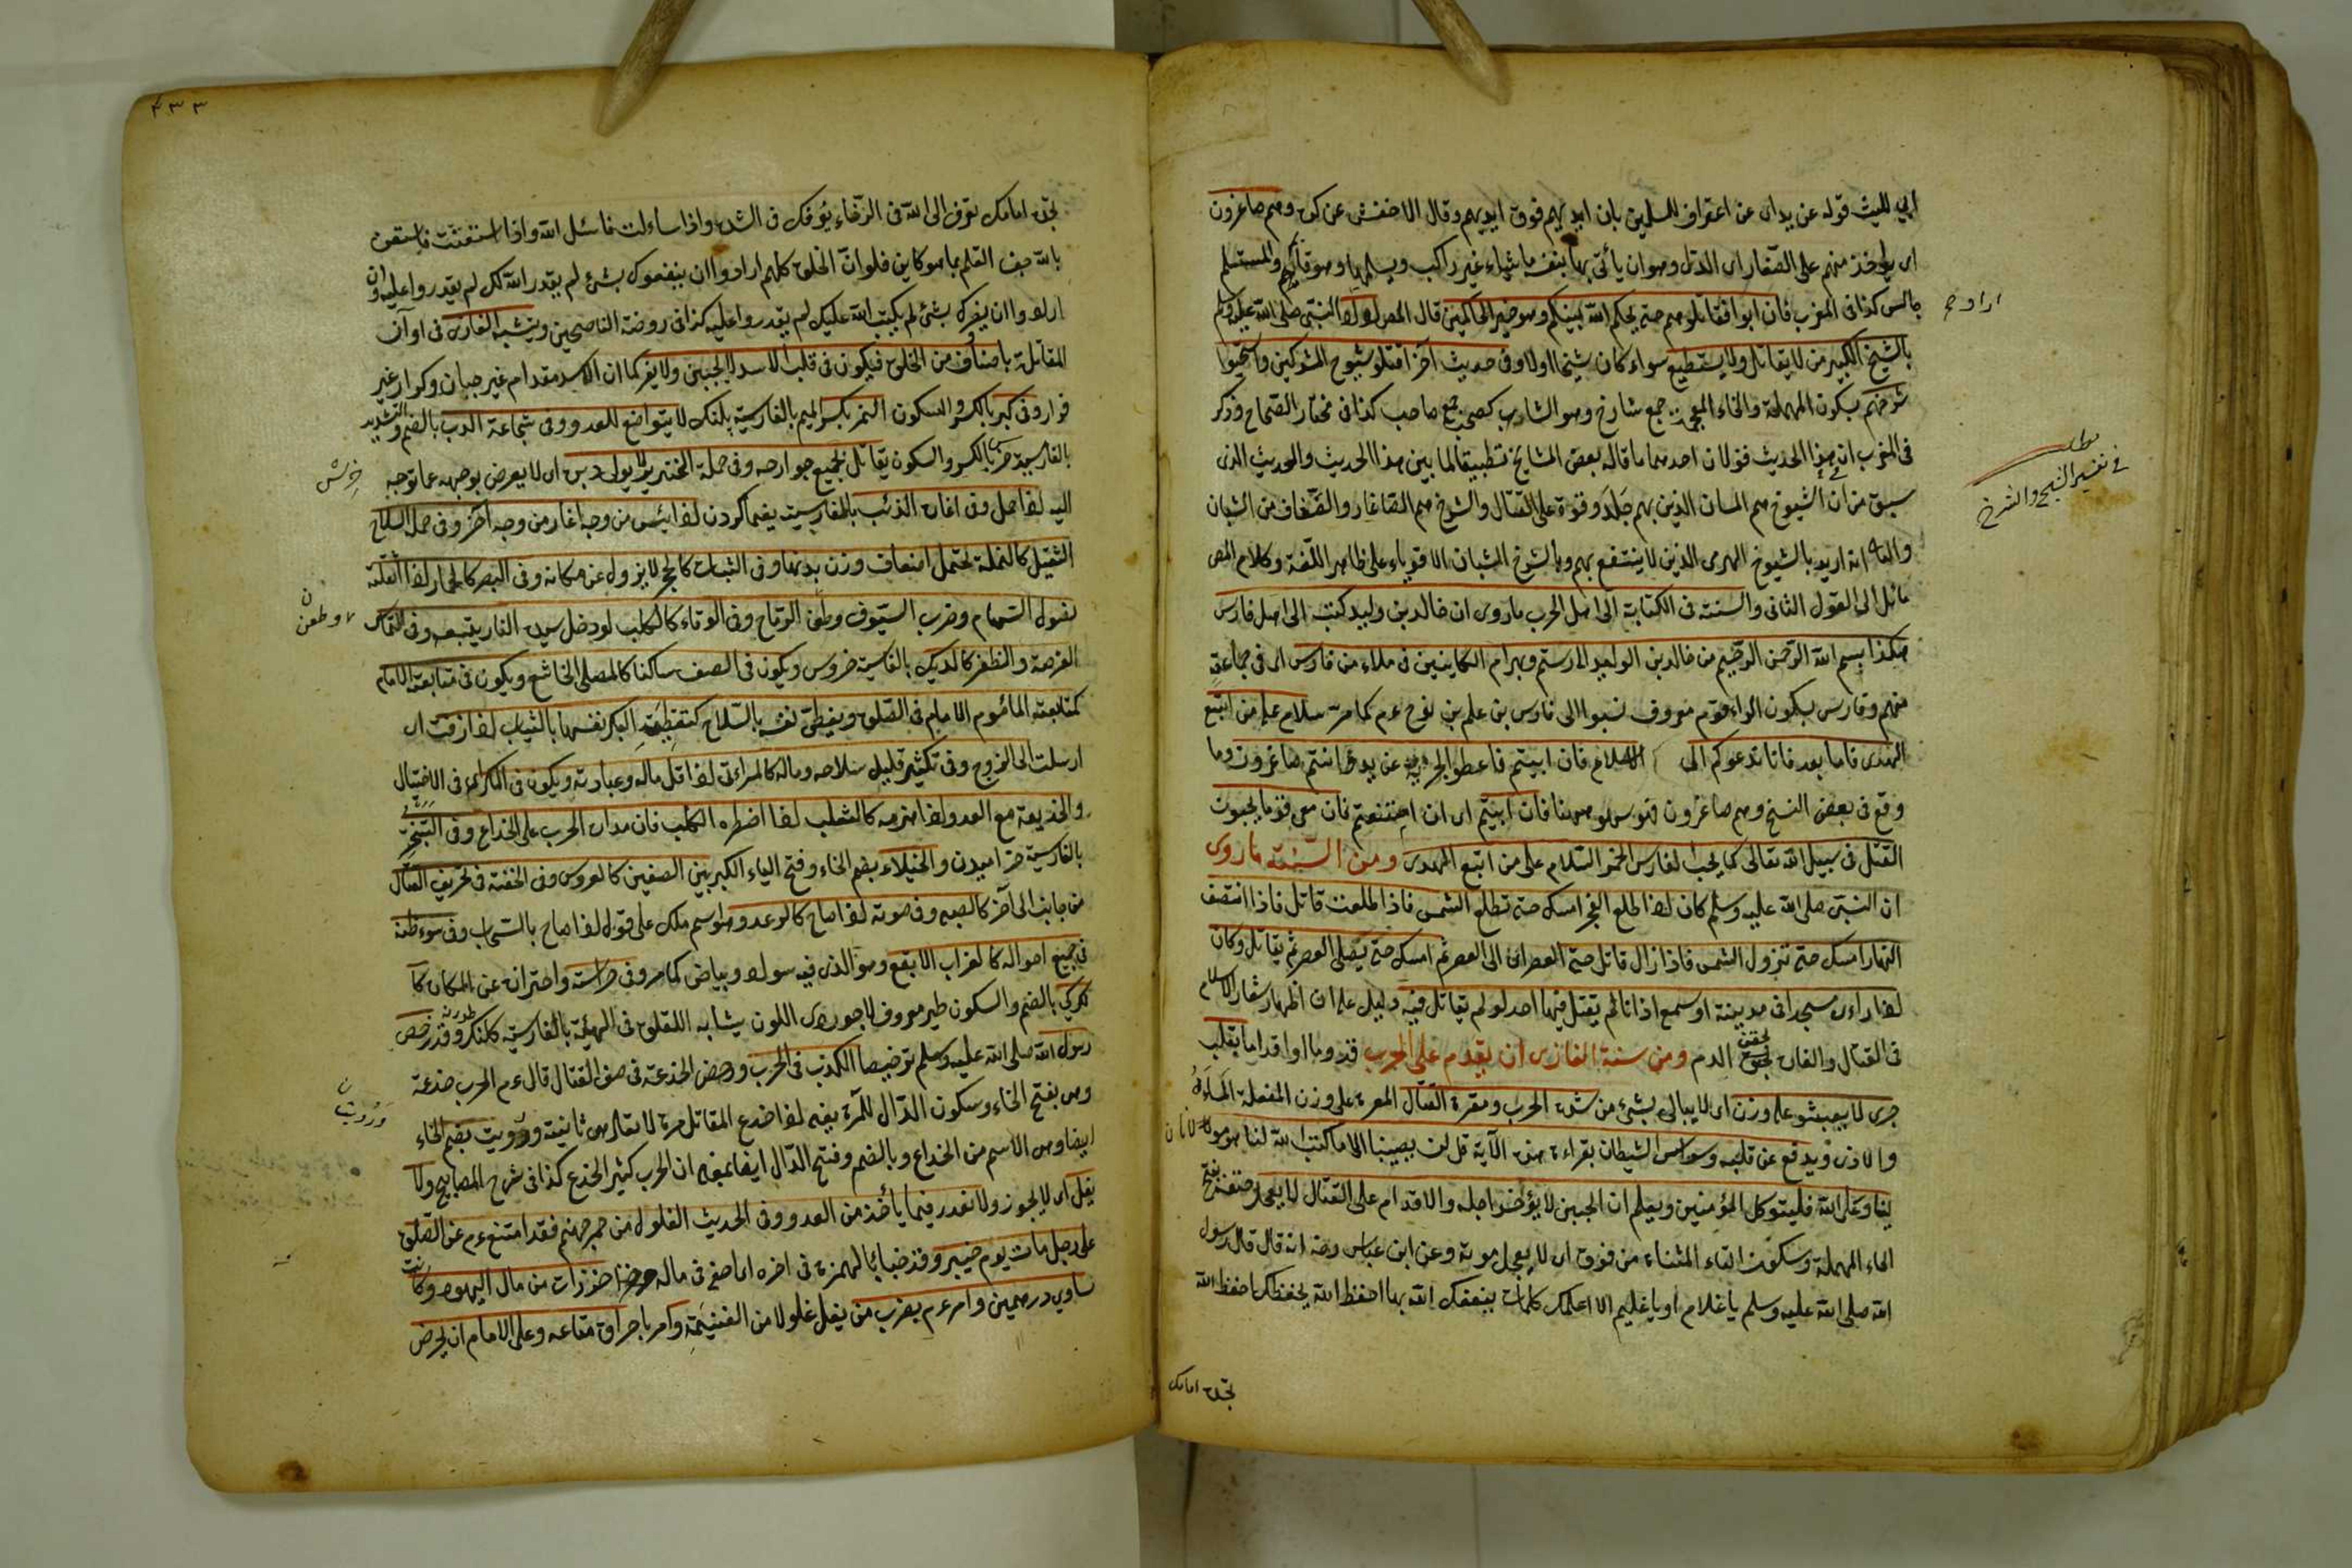 ابي الليث قوله عن يد اى عن اعتراف للمسلمين بان ايديهم فوق ايديهم وقال الاخفش عن كره وهم صاغرون
اى يؤخذ منهم على الصغار اى الذل وهو ان ياتى بها بنفسه ماشياء غير راكب ويسلمها وهو قائم والمستلم
جالس كذا فى المغرب فان ابوا فقاتلوهم حتى يحكم الله بينكم وهو خير الحاكمين قال المص اراد النبى صلى الله عليه وسلم
بالشيخ الكبير من لا يقاتل ولا يستطيع سواء كان شيخا اولا وفى حديث آخر اقتلوا شيوخ المشركين واستحيوا
شرخهم بسكون المهملة والخاء المعجمة جمع شارخ وهو الشاب كصحب جمع صاحب كذا فى مختار الصحاح وذكر
فى المغرب ان فى هذا الحديث قولان احدهما ما قاله بعض المشايخ تطبيقا لما بين هذا الحديث والحديث الذى
سبق من ان الشيوخ هم المسان الذين بهم جلد وقوة على القتال والشرخ هم الصغار والضعاف من الشبان
والثانى انه اريد بالشيوخ الهرمى الذين لا ينتفع بهم وبالشرخ الشبان الاقوياء على ظاهر اللغة وكلام المص
مائل الى القول الثانى والسنة فى الكتابة الى اهل الحرب ما روى ان خالد بن وليد كتب الى اهل فارس
هكذا بسم الله الرحمن الرحيم من خالد بن الوليد الى رستم وبهرام الكاينين فى ملاء من فارس اى فى جماعة
منهم وفارس بسكون الراء قوم معروف نسبوا الى فارس بن علم بن نوح عم كما مر سلام على من اتبع
الهدى فاما بعد فانا ندعوكم الى الاسلام فان ابيتم فاعطوا الجزية عن يد وانتم صاغرون وما
وقع فى بعض النسخ وهم صاغرون فهو سهو ههنا فان ابيتم اى ان امتنعتم فان معى قوما يحبون
القتل فى سبيل الله تعالى كما يحب الفارس الخمر السلام على من اتبع الهدى ومن السنة ما روى
ان النبى صلى الله عليه وسلم كان اذا طلع الفجر امسك حتى تطلع الشمس فاذا طلعت قاتل فاذا انتصف
النهار امسك حتى تزول الشمس فاذا زال قاتل حتى العصر اى الى العصر ثم امسك حتى يصلى العصر ثم يقاتل وكان
اذا راءى مسجدا فى مدينة او سمع اذانا لم يقتل فيها احد لو لم يقاتل فيه دليل على ان اظهار شعار الاسلام
فى القتال والغارة يحقن الدم ومن سنة الغازى ان يقدم على الحرب قدوما او اقداما بقلب
جرى لا يعبثو على وزن اى لا يبالى بشئ من شدة الحرب ومعرة القتال المعرة على وزن المفعلة المساءة
والاذى ويدفع عن قلبه وسواس الشيطان بقراءة هذه الآية قل لن يصيبنا الا ما كتب الله لنا هو مولانا
وعلى الله فليتوكل المؤمنين ويعلم ان الجبن لا يؤخر اجله والاقدام على القتال لا يعجل حتفه بفتح
الحاء المهملة وسكون التاء المثناء من فوق اى لا يعجل موته وعن ابن عباس رضه انه قال قال رسول
الله صلى الله عليه وسلم يا غلام او يا غليم الا اعلمك كلمات ينفعك الله بها احفظ الله يحفظك احفظ الله
تجده امامك
اراد
مطلب
فى تفسير الشيخ والشرخ
٤٣٣
تجده امامك تعرف الى الله فى الرخاء يعرفك فى الشدة واذا ساءلت فاسئل الله واذا استعنت فاستعن
بالله جف القلم بما هو كاين فلو ان الخلق كلهم ارادوا ان ينفعوك بشئ لم يقدر الله لك لم يقدروا عليه وان
ارادوا ان يضرك بشئ لم يكتب الله عليك لم يقدروا عليه كذا فى روضة الناصحين ويتشبه الغازى فى اوان
المقاتلة باصناف من الخلق فيكون فى قلب الاسد لا يجبن ولا يفر كما ان الاسد مقدام غير جبان وكرار غير
فرار وفى كبر بالكسر والسكون النمر بكسر الميم بالفارسية پلنك لا يتواضع للعدو وفى شجاعة الدب بالضم والتشديد
بالفارسية خرس بالكسر والسكون يقاتل بجميع جوارحه وفى حملة الخنزير لا يولى دبره اى لا يعرض بوجهه عما توجه
اليه اذا حمل وفى اغارة الذئب بالفارسية يغما كردن اذا ايئس من وجه اغار من وجه آخر وفى حمل السلاح
الثقيل كالنملة تحتمل اضعاف وزن بدنها وفى الثبات كالحجر لا يزول عن مكانه وفى الصبر كالحمار اذا اثقلته
نصول السهام وضرب السيوف وطعن الرماح وفى الوفاء كالكلب لو دخل سيده النار يتبعه وفى التماس
الفرصة والظفر كالديك بالفارسية خروس ويكون فى الصف ساكنا كالمصلى الخاشع ويكون فى متابعة الامام
كمتابعة المأموم الامام فى الصلوة ويغطى نفسه بالسلاح كتغطية البكر نفسها بالثياب اذا زفت اى
ارسلت الى الزوج وفى تكثير قليل سلاحه وماله كالمراءى اذا قل ماله وعبادته ويكون فى المكر اى فى الاحتيال
والخديعة مع العدو اذا هزمه كالثعلب اذا اضطره الكلب فان مدار الحرب على الخداع وفى التبختر
بالفارسية خراميدن والخيلاء بضم الخاء وفتح الياء الكبر بين الصفين كالعروس وفى الخفة فى تحريف القتال
من جانب الى آخر كالصبى وفى صوته اذا صاح كالرعد وهو اسم ملك على قول اذا صاح بالسحاب وفى سوء ظنه
فى جميع احواله كالغراب الابقع وهو الذى فيه سواد وبياض كما مر وفى حراسته واحترازه عن المكان كا
لكركى بالضم والسكون طير معروف لاجوردى اللون يشابه اللقلق فى الهيئة بالفارسية كلنك وقد رخص
رسول الله صلى الله عليه وسلم ترخيصا الكذب فى الحرب ورخص الخدعة فى صف القتال قال عم الحرب خدعة
وهى بفتح الخاء وسكون الدال للمرة يعنى اذا خدع المقاتل مرة لا تعاد له ثانية ورويت بضم الخاء
ايضا وهى الاسم من الخداع وبالضم وفتح الدال ايضا بمعنى ان الحرب كثير الخدع كذا فى شرح المصابيح ولا
يغل اى لا يجوز ولا يغدر فيما يأخذ من العدو وفى الحديث الغلول من جمر جهنم فقد امتنع عم عن الصلوة
على رجل مات يوم خيبر وقد خبأ بالهمزة فى اخره اى اخفى فى ماله خرزات من مال اليهود وكانت
تساوى درهمين وامر عم بضرب من يغل غلولا من الغنيمة وامر باحراق متاعه وعلى الامام ان يحرض